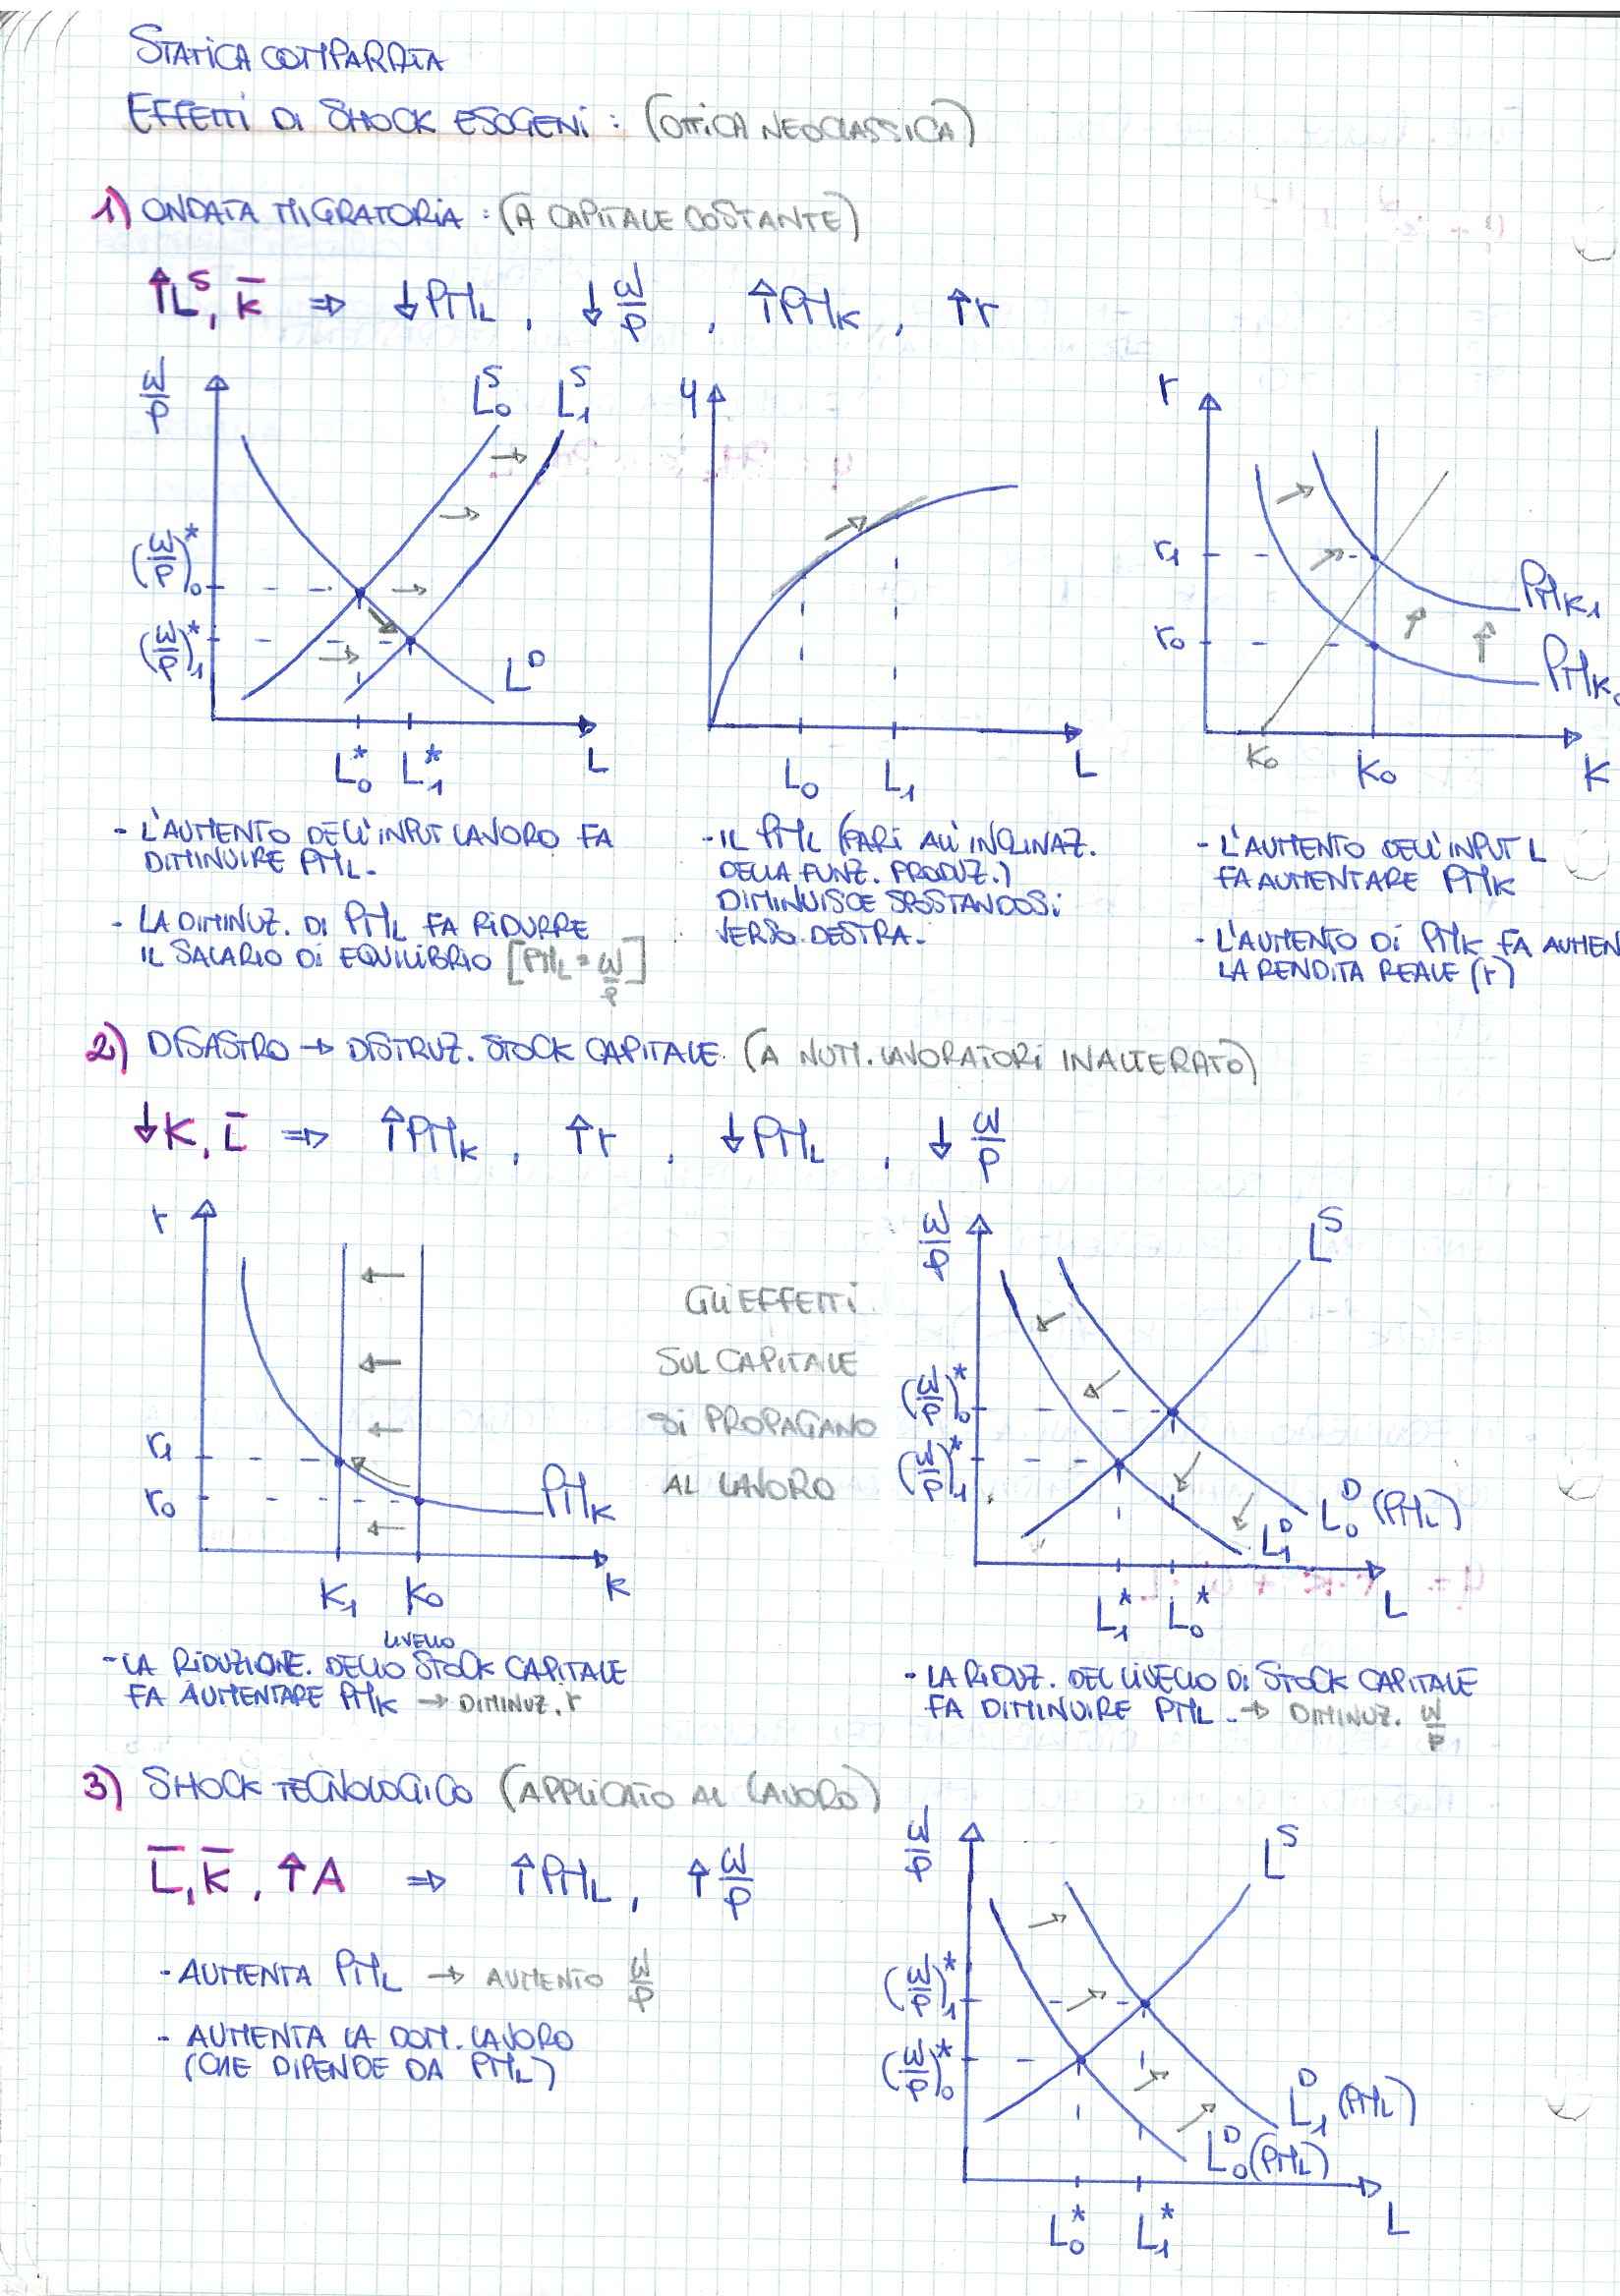 STATICA COMPARATA
EFFETTI DI SHOCK ESOGENI : (OTTICA NEOCLASSICA)
1) ONDATA MIGRATORIA : (A CAPITALE COSTANTE)
↑L^S, K̄ ⇒ ↓PML , ↓ W/P , ↑PMK , ↑r
W/P L₀^S L₁^S
(W/P)₀*
(W/P)₁*
L^D
L₀* L₁* L
Y
L₀ L₁ L
r
r₁
r₀
PMK₁
PMK₀
K₀ K₀ K
- L'AUMENTO DELL'INPUT LAVORO FA
DIMINUIRE PML.
- LA DIMINUZ. DI PML FA RIDURRE
IL SALARIO DI EQUILIBRIO [PML = W/P]
- IL PML (PARI ALL'INCLINAZ.
DELLA FUNZ. PRODUZ.)
DIMINUISCE SPOSTANDOSI
VERSO DESTRA.
- L'AUMENTO DELL'INPUT L
FA AUMENTARE PMK
- L'AUMENTO DI PMK FA AUMEN
LA RENDITA REALE (r)
2) DISASTRO → DISTRUZ. STOCK CAPITALE (A NUM. LAVORATORI INALTERATO)
↓K, L̄ ⇒ ↑PMK , ↑r , ↓PML , ↓ W/P
r
r₁
r₀
PMK
K₁ K₀ K
GLI EFFETTI
SUL CAPITALE
SI PROPAGANO
AL LAVORO
W/P L^S
(W/P)₀*
(W/P)₁*
L₀^D (PML)
L₁^D
L₁* L₀* L
LIVELLO
- LA RIDUZIONE. DELLO STOCK CAPITALE
FA AUMENTARE PMK → DIMINUZ. r
- LA RIDUZ. DEL LIVELLO DI STOCK CAPITALE
FA DIMINUIRE PML → DIMINUZ. W/P
3) SHOCK TECNOLOGICO (APPLICATO AL LAVORO)
L̄, K̄, ↑A ⇒ ↑PML , ↑ W/P
- AUMENTA PML → AUMENTO W/P
- AUMENTA LA DOM. LAVORO
(CHE DIPENDE DA PML)
W/P L^S
(W/P)₁*
(W/P)₀*
L₁^D (PML)
L₀^D (PML)
L₀* L₁* L